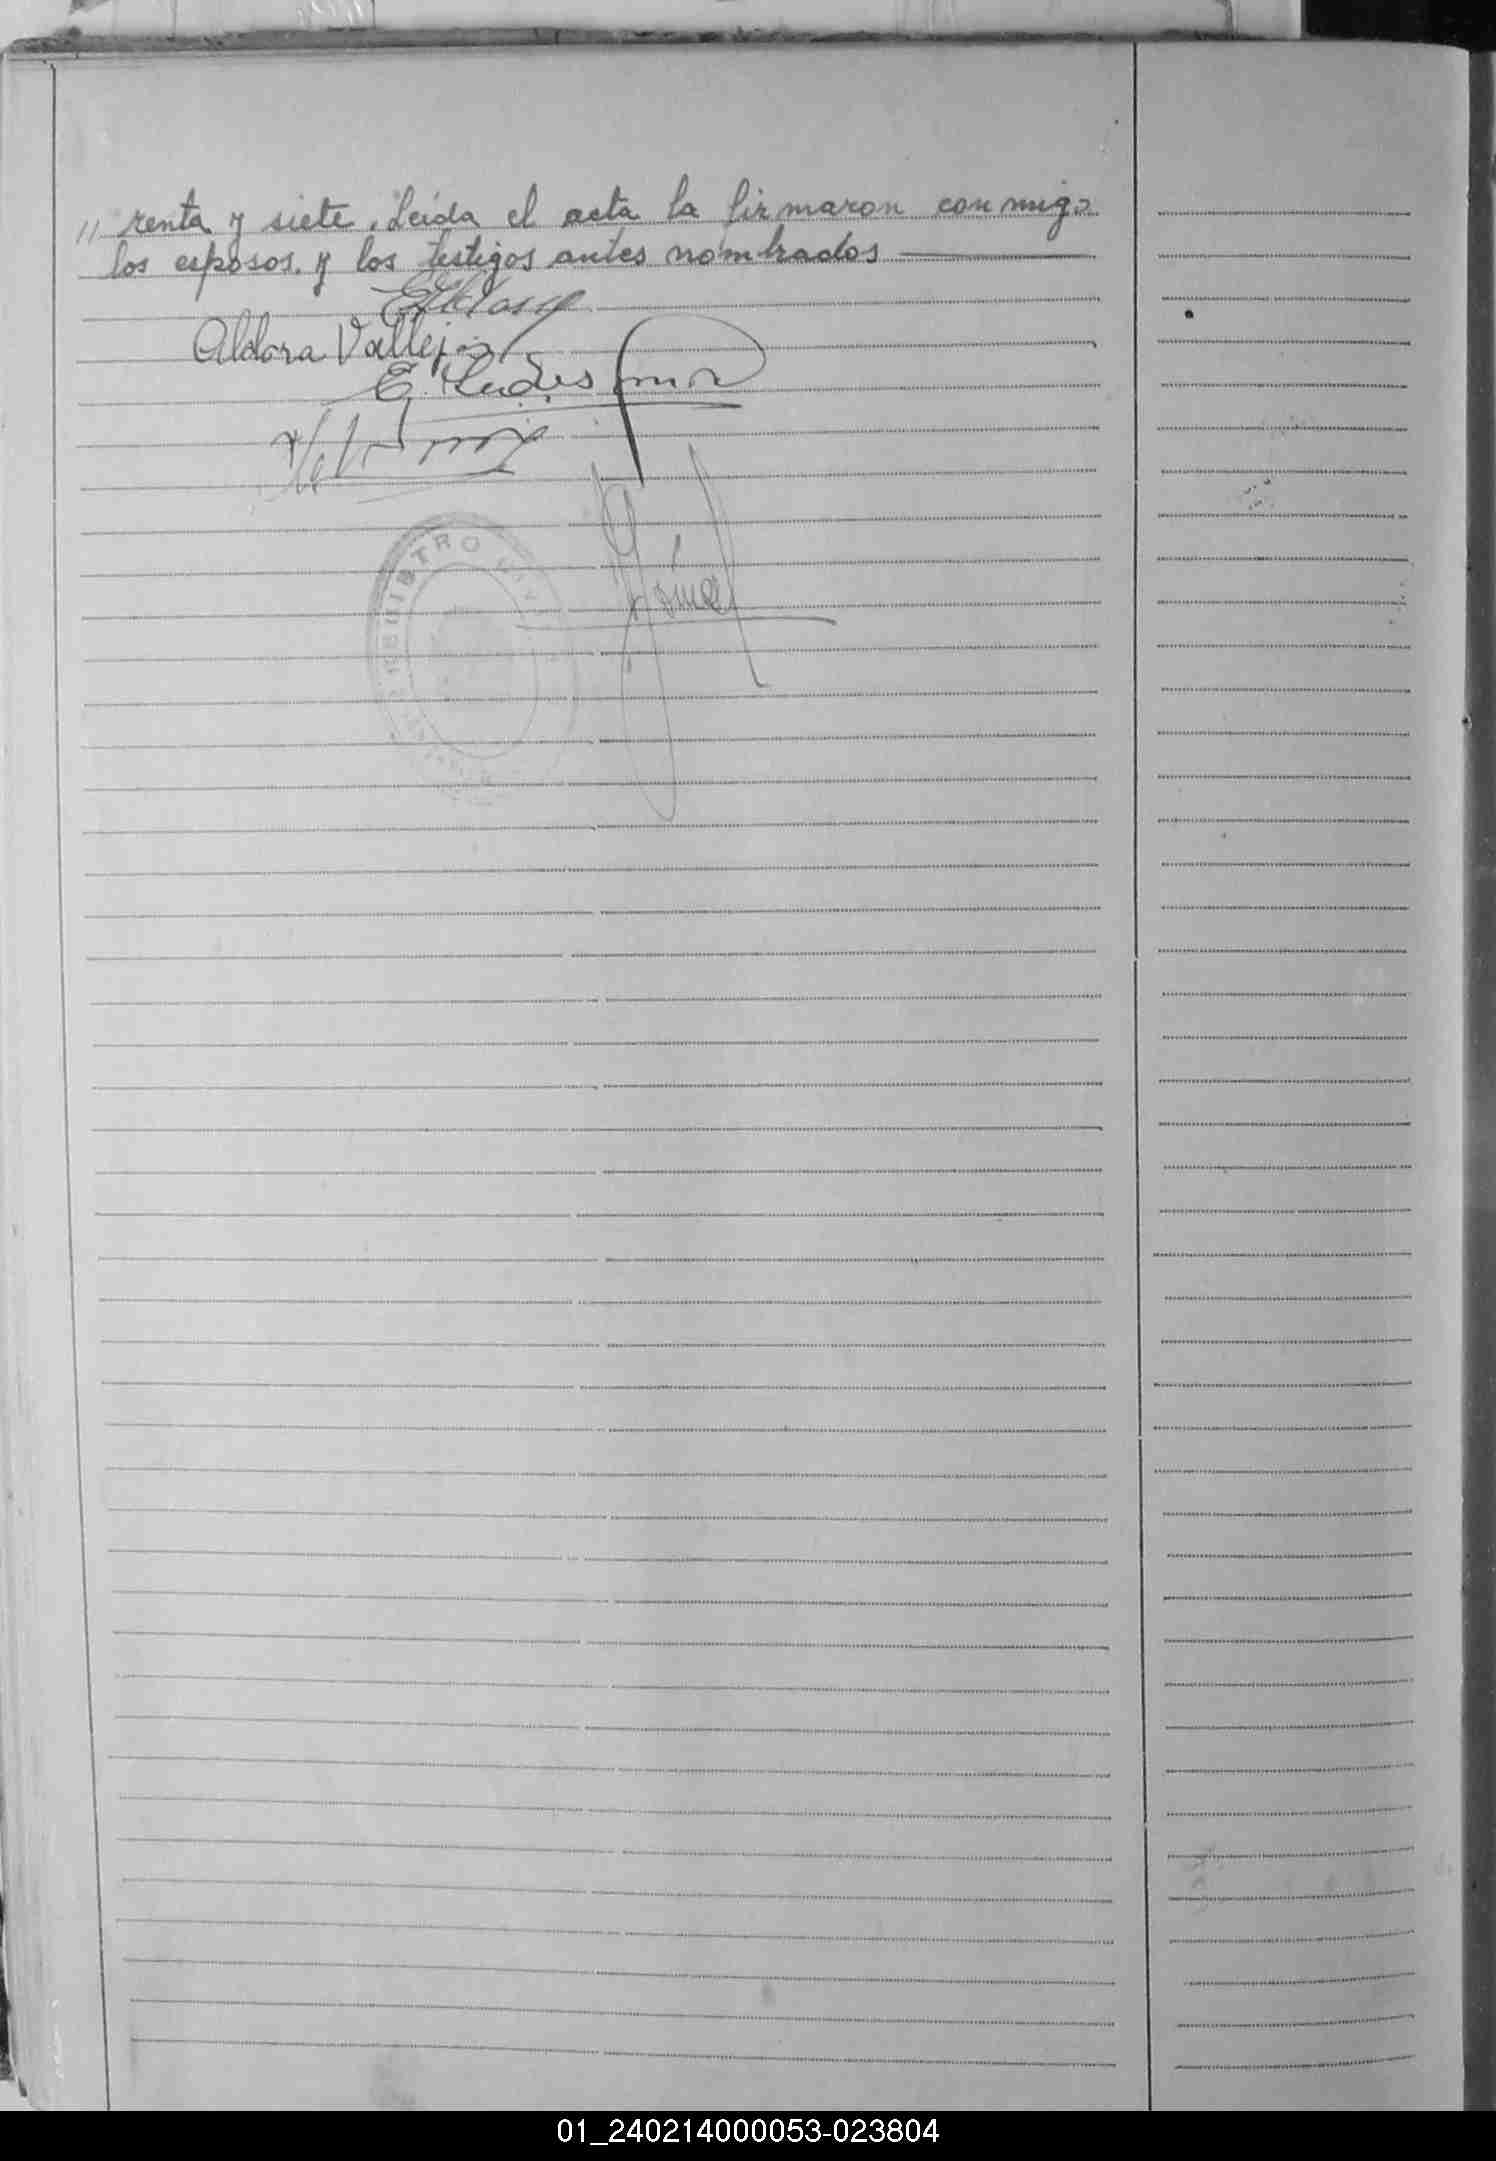 // renta y siete. Leída el acta la firmaron conmigo
los esposos y los testigos antes nombrados
Aldora Vallejos
E.
Gómez
REGISTRO CIVIL
01_240214000053-023804